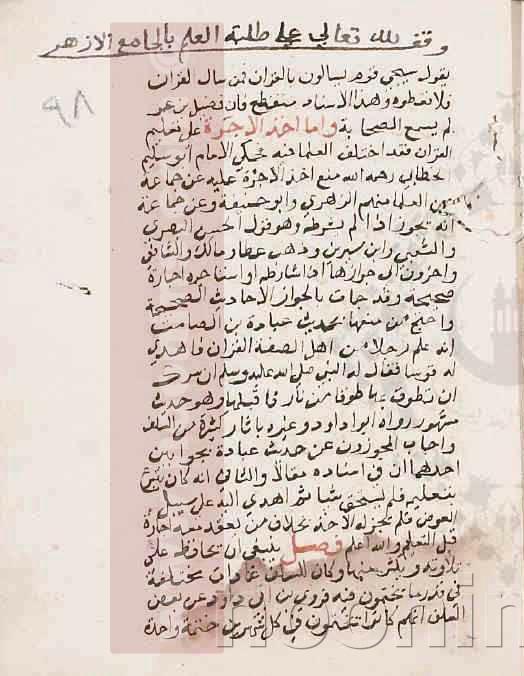 وقف لله تعالى على طلبة العلم بالجامع الازهر
٩٨
يقول سيجي قوم يسالون بالقران فمن سال بالقران
فلا تعطوه وهذا الاسناد منقطع فان فضيل بن عمرو
لم يسمع الصحابة واما اخذ الاجرة على تعليم
القران فقد اختلف العلما فيه فحكى الامام ابو سليمن
الخطابي رحمه الله منع اخذ الاجرة عليه عن جماعة
من العلما منهم الزهري وابو حنيفة وعن جماعة
انه تجوز اذا لم يشرطه وهو قول الحسن البصري
والشعبي وابن سيرين وذهب عطا ومالك والشافعي
واخرون الى جوازها اذا شارطه او استاجره اجارة
صحيحة وقد جات بالجواز الاحاديث الصحيحة
واحتج من منعها بحديث عبادة بن الصامت
انه علم رجلا من اهل الصفة القران فاهدي
له قوسا فقال له النبي صلى الله عليه وسلم ان سرك
ان تطوق بها طوقا من نار فاقبلها وهو حديث
مشهور رواه ابو داود وغيره باثار كثيرة من السلف
واجاب المجوزون عن حديث عبادة بجوابين
احدهما ان في اسناده مقالا والثاني انه كان تبرع
بتعليمه فلم يستحق شيا ثم اهدي اليه على سبيل
العوض فلم يجز له الاخذ بخلاف من يعقد معه اجارة
قبل التعليم والله اعلم فصل ينبغي ان يحافظ على
تلاوته ويكثر منها وكان للسلف عادات مختلفة
في قدر ما يختمون فيه فروي ابن ابي داود عن بعض
السلف انهم كانوا يختمون في كل شهرين ختمة واحدة